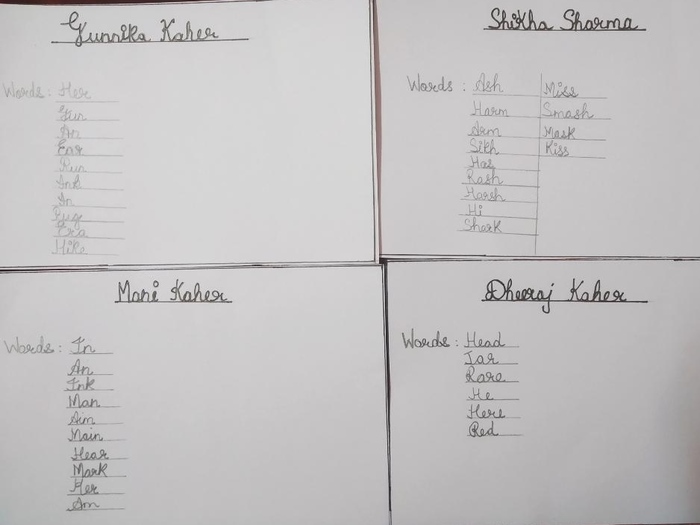 Gunnika Kaher
Words: Her
Gun
An
Ear
Run
Ink
In
Rug
Era
Hike
Shikha Sharma
Words: Ash Miss
Harm Smash
Arm Mask
Sikh Kiss
Has
Rash
Harsh
Hi
Shark
Mani Kaher
Words: In
An
Ink
Man
Aim
Main
Hear
Mark
Her
Am
Dheeraj Kaher
Words: Head
Jar
Rare
He
Here
Red